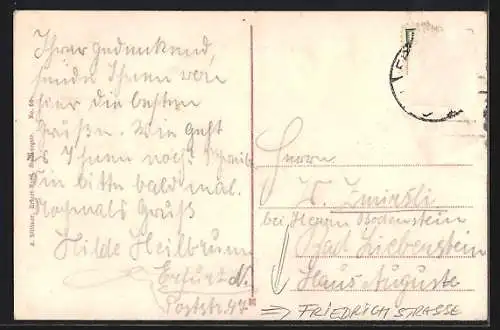 Ihrer gedenkend,
sende Ihnen von
hier die besten
Grüße. Wie geht
es Ihnen noch? Schreib
Sie bitte bald mal.
Nochmals Gruß
Hilde Heilbrunn
Erfurt N.
Poststr. 47
Herrn
W.
bei Herrn Bodenstein
Bad Liebenstein
Haus Auguste
⇒ FRIEDRICHSTRASSE